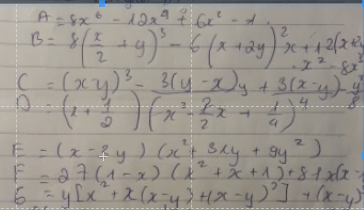 A = 8x⁶ - 12x⁴ + 6x² - 1
B = 8(x/2 + y)³ - 6(x + 2y)²x + 12(x+2y
x² - 8x³
C = (x-y)³ - 3(y-x)²y + 3(x-y)
D = (x + 1/2)(x² - 2/2x + 1/4)
E = (x - 3y)(x² + 3xy + 9y²)
F = 27(1-x)(x² + x + 1) + 81x(x-1
G = y[x² + x(x-y) + (x-y)²] + (x-y)